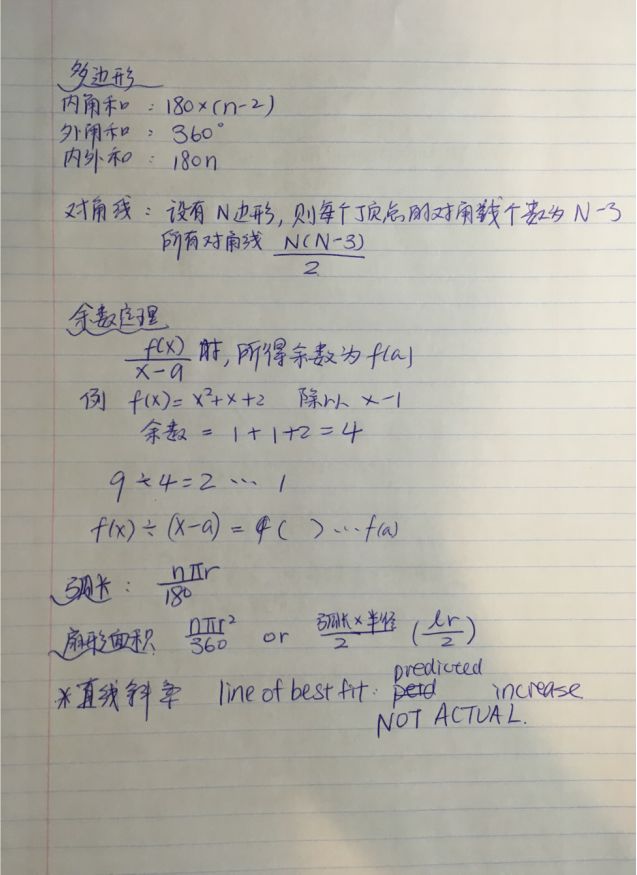 多边形
内角和：180×(n-2)
外角和：360°
内外和：180n
对角线：设有N边形，则每个顶点的对角线个数为N-3
所有对角线 N(N-3)/2
余数定理
f(x)/(x-a) 时，所得余数为f(a)
例 f(x)=x²+x+2 除以 x-1
余数 = 1+1+2=4
9÷4=2 … 1
f(x)÷(x-a) = q( ) … f(a)
弧长：nπr/180
扇形面积 nπr²/360 or 弧长×半径/2 (lr/2)
predicted
※直线斜率 line of best fit: increase
NOT ACTUAL.